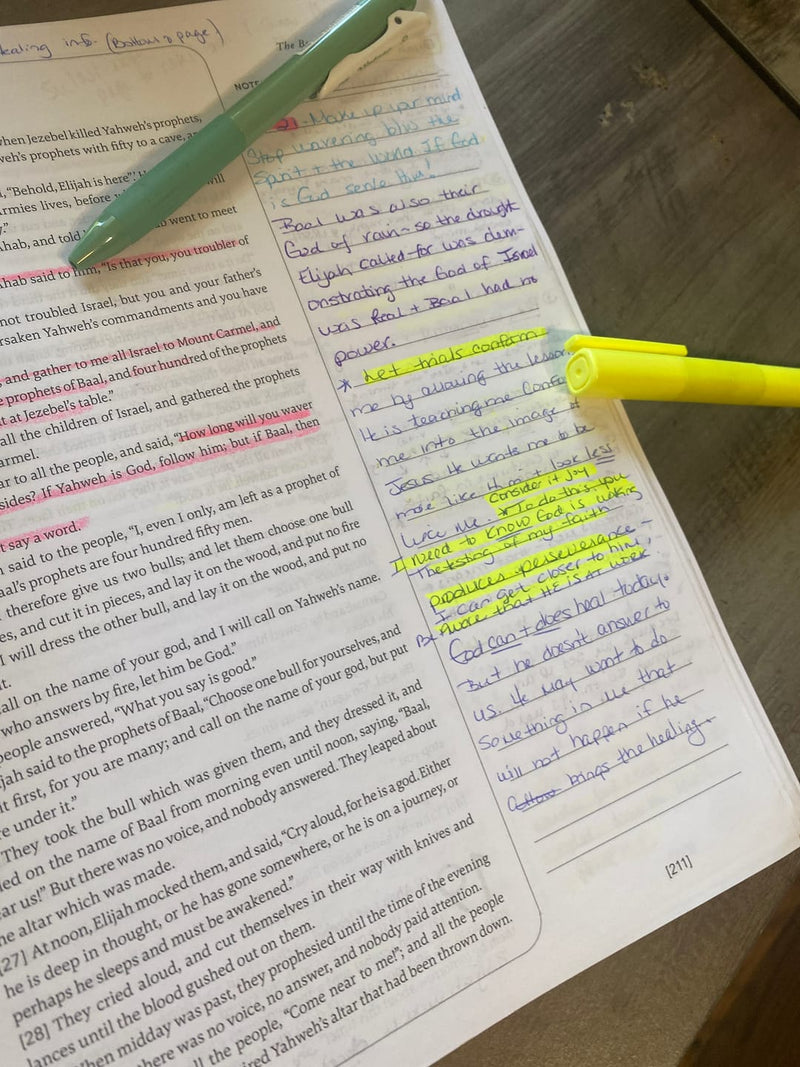 ealing info- (Bottom of page)
The B
NOTE
when Jezebel killed Yahweh's prophets,
weh's prophets with fifty to a cave,
, "Behold, Elijah is here"!
will
Armies lives, before
y."
went to meet
Ahab, and told
Ahab said to him, "Is that you, you troubler of
not troubled Israel, but you and your father's
rsaken Yahweh's commandments and you have
, and gather to me all Israel to Mount Carmel, and
e prophets of Baal, and four hundred of the prophets
t at Jezebel's table."
all the children of Israel, and gathered the prophets
armel.
ar to all the people, and said, "How long will you waver
sides? If Yahweh is God, follow him; but if Baal, then
t say a word.
said to the people, "I, even I only, am left as a prophet of
aal's prophets are four hundred fifty men.
therefore give us two bulls; and let them choose one bull
es, and cut it in pieces, and lay it on the wood, and put no fire
I will dress the other bull, and lay it on the wood, and put no
it.
all on the name of your god, and I will call on Yahweh's name.
who answers by fire, let him be God."
people answered, "What you say is good."
jah said to the prophets of Baal, "Choose one bull for yourselves, and
it first, for you are many; and call on the name of your god, but put
re under it."
They took the bull which was given them, and they dressed it, and
led on the name of Baal from morning even until noon, saying, "Baal,
ar us!" But there was no voice, and nobody answered. They leaped about
he altar which was made.
[27] At noon, Elijah mocked them, and said, "Cry aloud, for he is a god. Either
he is deep in thought, or he has gone somewhere, or he is on a journey, or
perhaps he sleeps and must be awakened."
[28] They cried aloud, and cut themselves in their way with knives and
lances until the blood gushed out on them.
When midday was past, they prophesied until the time of the evening
there was no voice, no answer, and nobody paid attention.
ll the people, "Come near to me!"; and all the people
ired Yahweh's altar that had been thrown down.
21 - Make up your mind
Stop wavering b/w the
Spirit + the world. If God
is God serve Him!
Baal was also their
God of rain - so the drought
Elijah called for was dem-
onstrating the God of Israel
was Real + Baal had no
power.
* Let trials conform
me by allowing the lesson
He is teaching me conform
me into the image of
Jesus. He wants me to be
more like Him + look less
like me. Consider it Joy
*To do this you
need to know God is making
The testing of my faith
produces perseverance -
I can get closer to him,
Be aware that HE is at work.
God can + does heal today.
But he doesn't answer to
us. He may want to do
something in me that
will not happen if he
brings the healing.
[211]